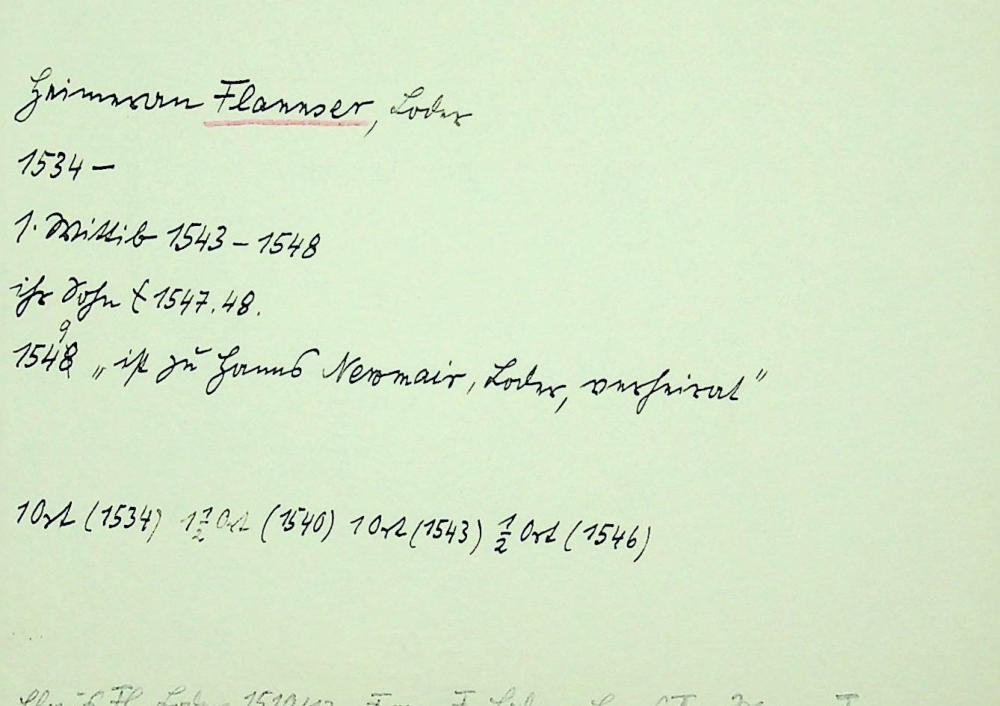 Heimeran Flannser, Loder
1534 –
1. Wittib 1543 – 1548
ihr Sohn 1547.48.
9
1548 „ist zu Hanns Newmair, Loder, verheirat"
1 Ort (1534) 1 1/2 Ort (1540) 1 Ort (1543) 1/2 Ort (1546)